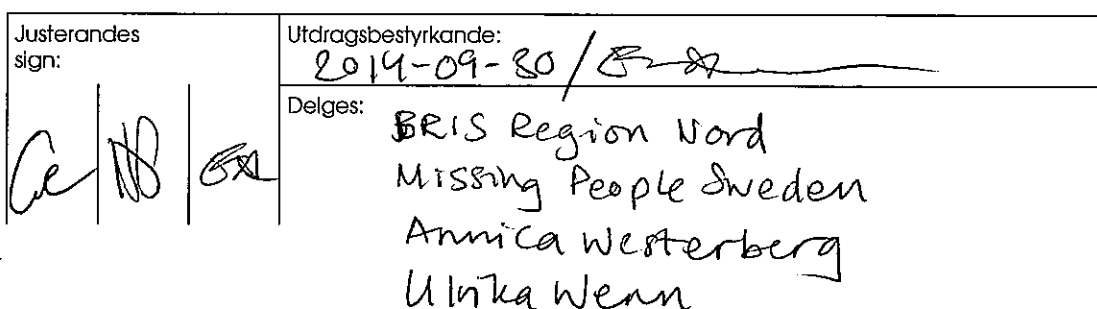 Justerandes
sign:
Utdragsbestyrkande:
2014-09-30 /
Delges:
BRIS Region Nord
Missing People Sweden
Annica Westerberg
Ulrika Wenn